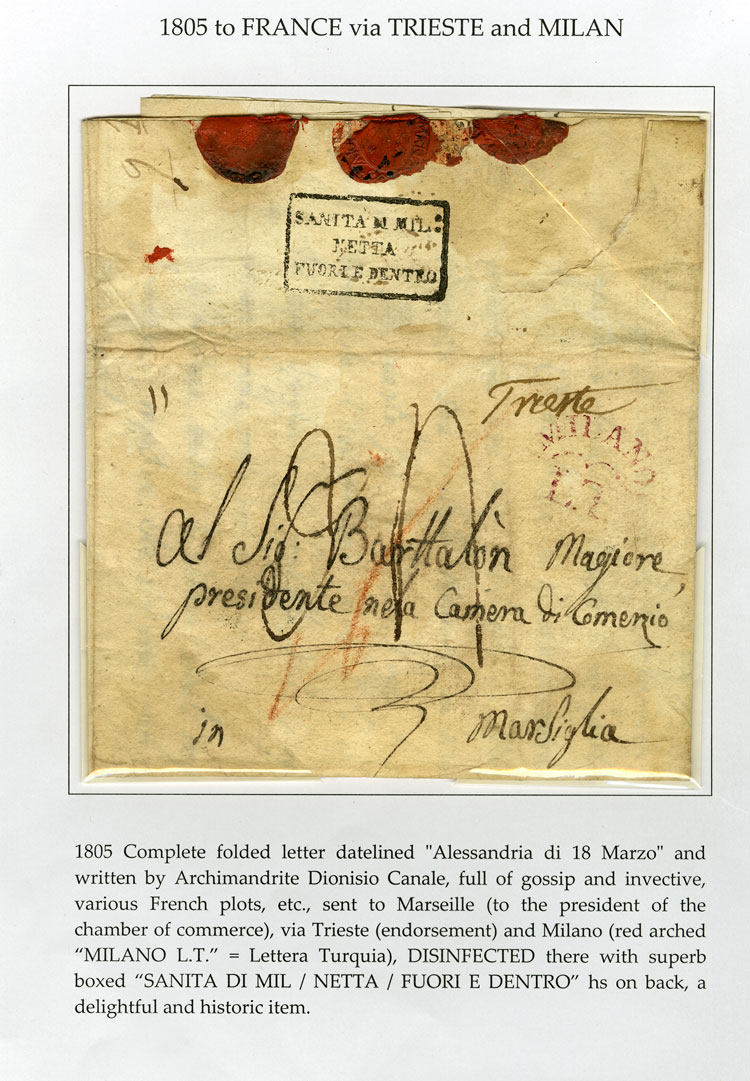 1805 to FRANCE via TRIESTE and MILAN
SANITA DI MIL:
NETTA
FUORI E DENTRO
Trieste
MILANO
L.T.
Al Sig: Barttalòn Magiore
presidente nela Camera di Comerzio
in Marsiglia
1805 Complete folded letter datelined "Alessandria di 18 Marzo" and
written by Archimandrite Dionisio Canale, full of gossip and invective,
various French plots, etc., sent to Marseille (to the president of the
chamber of commerce), via Trieste (endorsement) and Milano (red arched
“MILANO L.T.” = Lettera Turquia), DISINFECTED there with superb
boxed “SANITA DI MIL / NETTA / FUORI E DENTRO” hs on back, a
delightful and historic item.